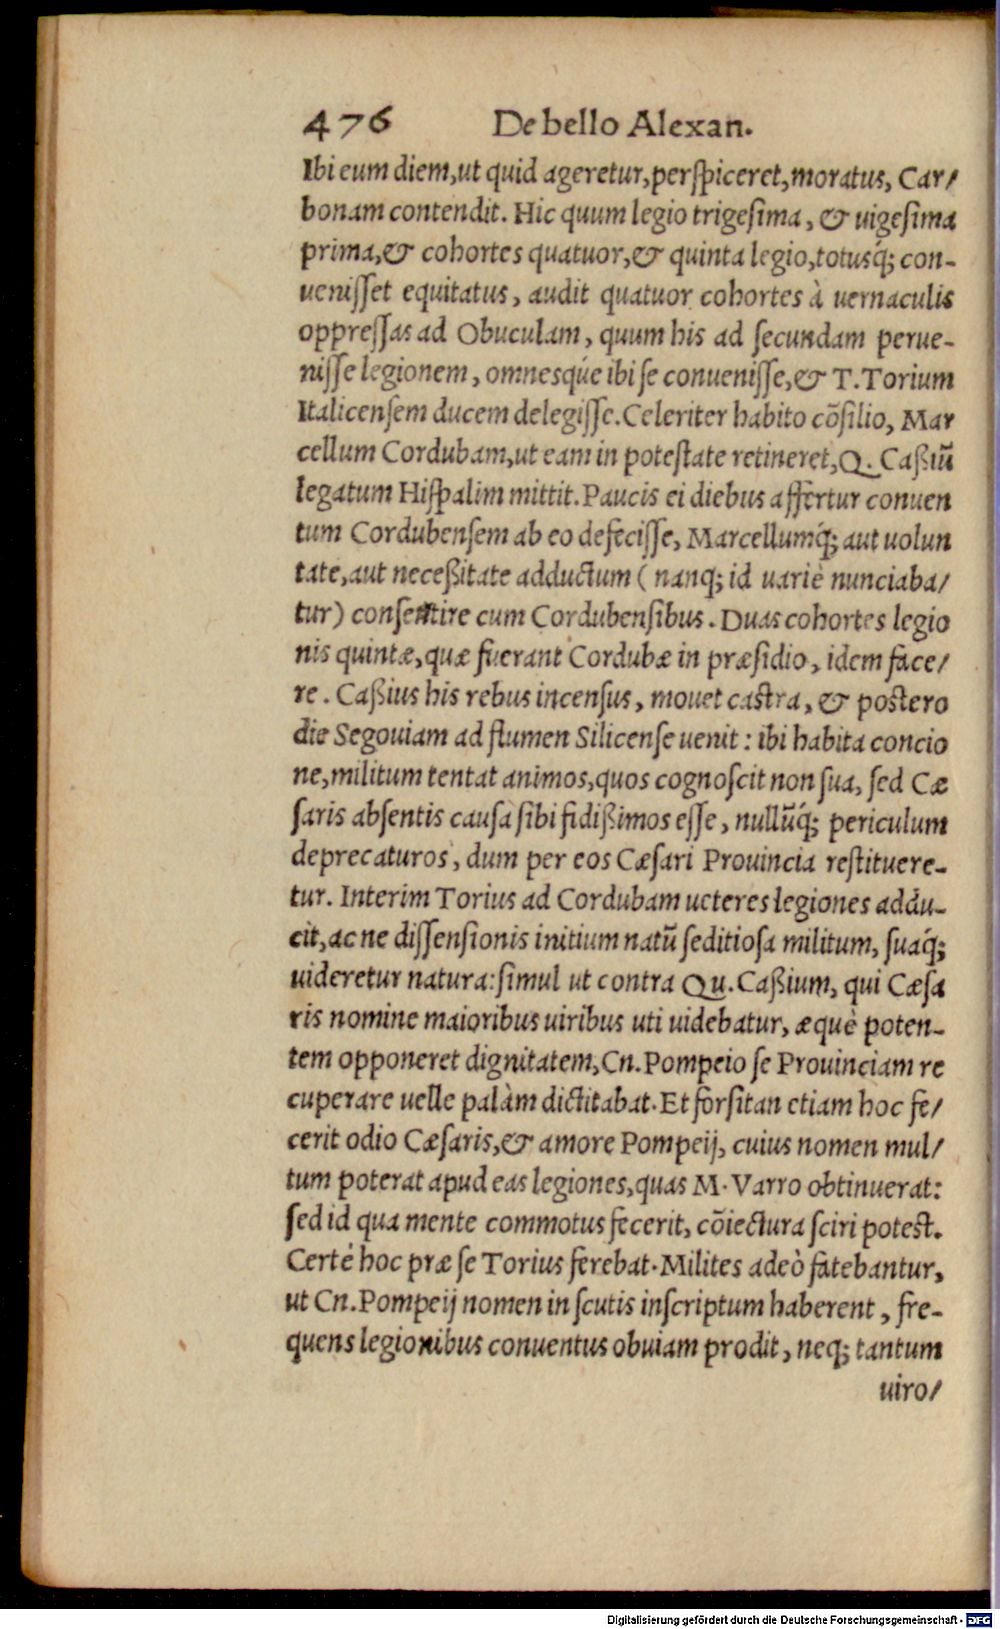 476 De bello Alexan.
Ibi eum diem, ut quid ageretur, perspiceret, moratus, Car/
bonam contendit. Hic quum legio trigesima, & uigesima
prima, & cohortes quatuor, & quinta legio, totusq́; con-
uenisset equitatus, audit quatuor cohortes à uernaculis
oppressas ad Obuculam, quum his ad secundam perue-
nisse legionem, omnesqúe ibi se conuenisse, & T. Torium
Italicensem ducem delegisse. Celeriter habito cōsilio, Mar
cellum Cordubam, ut eam in potestate retineret, Q. Caßiū
legatum Hispalim mittit. Paucis ei diebus affertur conuen
tum Cordubensem ab eo defecisse, Marcellumq́; aut uolun
tate, aut neceßitate adductum (nanq; id uariè nunciaba/
tur) consentire cum Cordubensibus. Duas cohortes legio
nis quintæ, quæ fuerant Cordubæ in præsidio, idem face/
re. Caßius his rebus incensus, mouet castra, & postero
die Segouiam ad flumen Silicense uenit: ibi habita concio
ne, militum tentat animos, quos cognoscit non sua, sed Cæ
saris absentis causa sibi fidißimos esse, nullūq́; periculum
deprecaturos, dum per eos Cæsari Prouincia restituere-
tur. Interim Torius ad Cordubam ueteres legiones addu-
cit, ac ne dissensionis initium natū seditiosa militum, suaq́;
uideretur natura: simul ut contra Qu. Caßium, qui Cæsa
ris nomine maioribus uiribus uti uidebatur, æquè poten-
tem opponeret dignitatem, Cn. Pompeio se Prouinciam re
cuperare uelle palàm dictitabat. Et forsitan etiam hoc fe/
cerit odio Cæsaris, & amore Pompeij, cuius nomen mul/
tum poterat apud eas legiones, quas M. Varro obtinuerat:
sed id qua mente commotus fecerit, cōiectura sciri potest.
Certé hoc præ se Torius ferebat. Milites adeò fatebantur,
ut Cn. Pompeij nomen in scutis inscriptum haberent, fre-
quens legionibus conuentus obuiam prodit, neq; tantum
uiro/
Digitalisierung gefördert durch die Deutsche Forschungsgemeinschaft - DFG